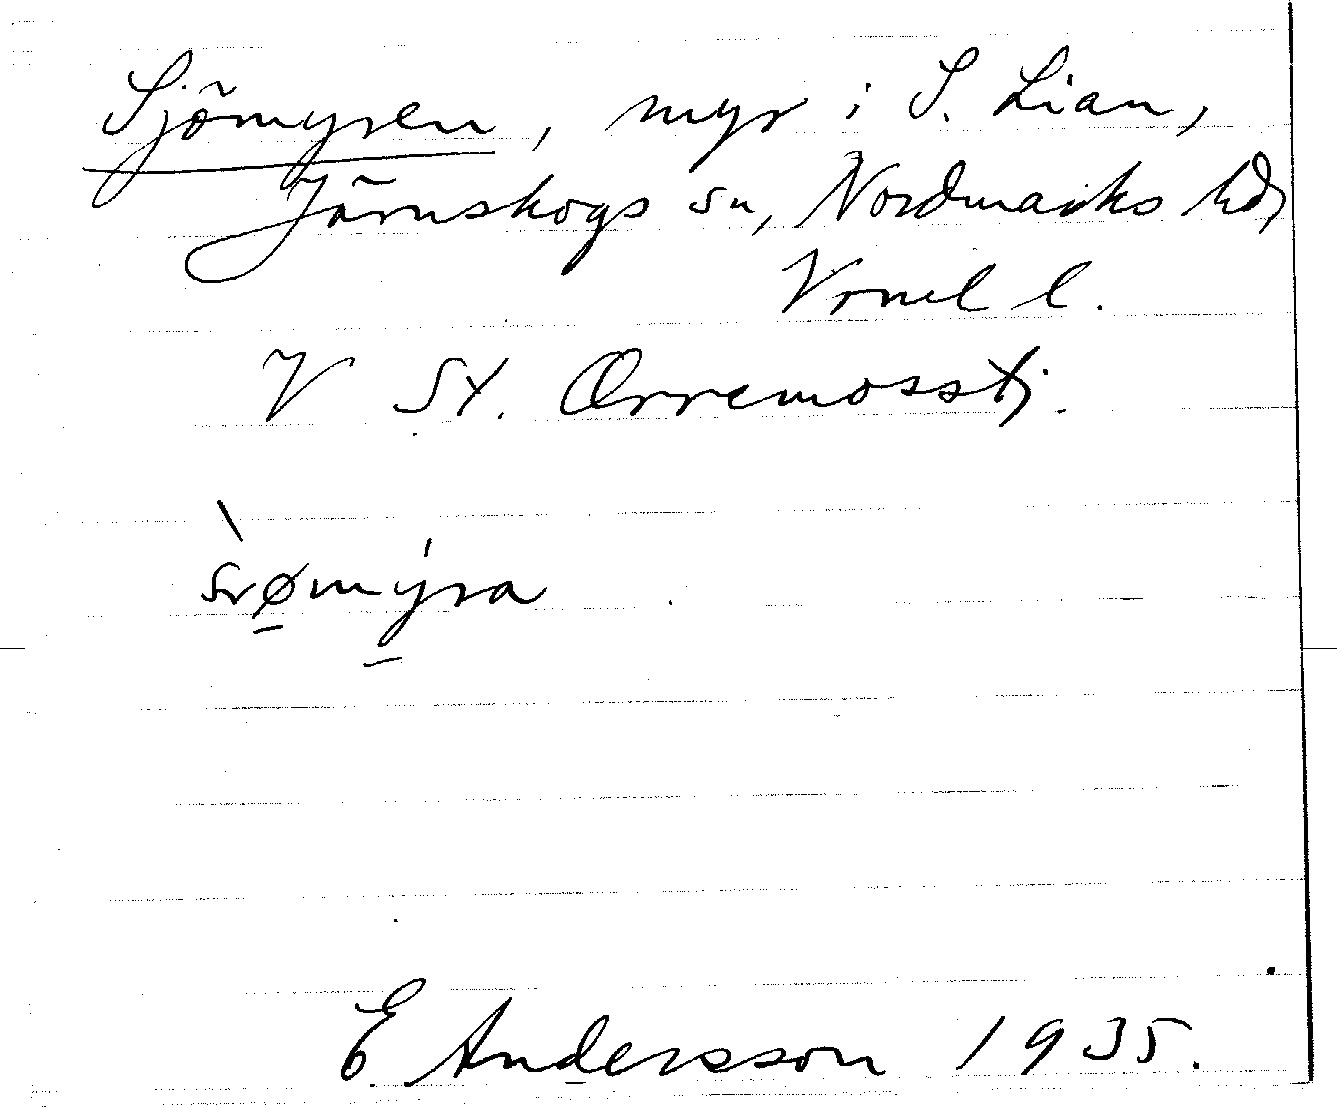 Sjömyren, myr i S. Lian,
Järnskogs sn, Nordmarks hd,
Vrml l.
V St. Orremosstj.
E Andersson 1935.